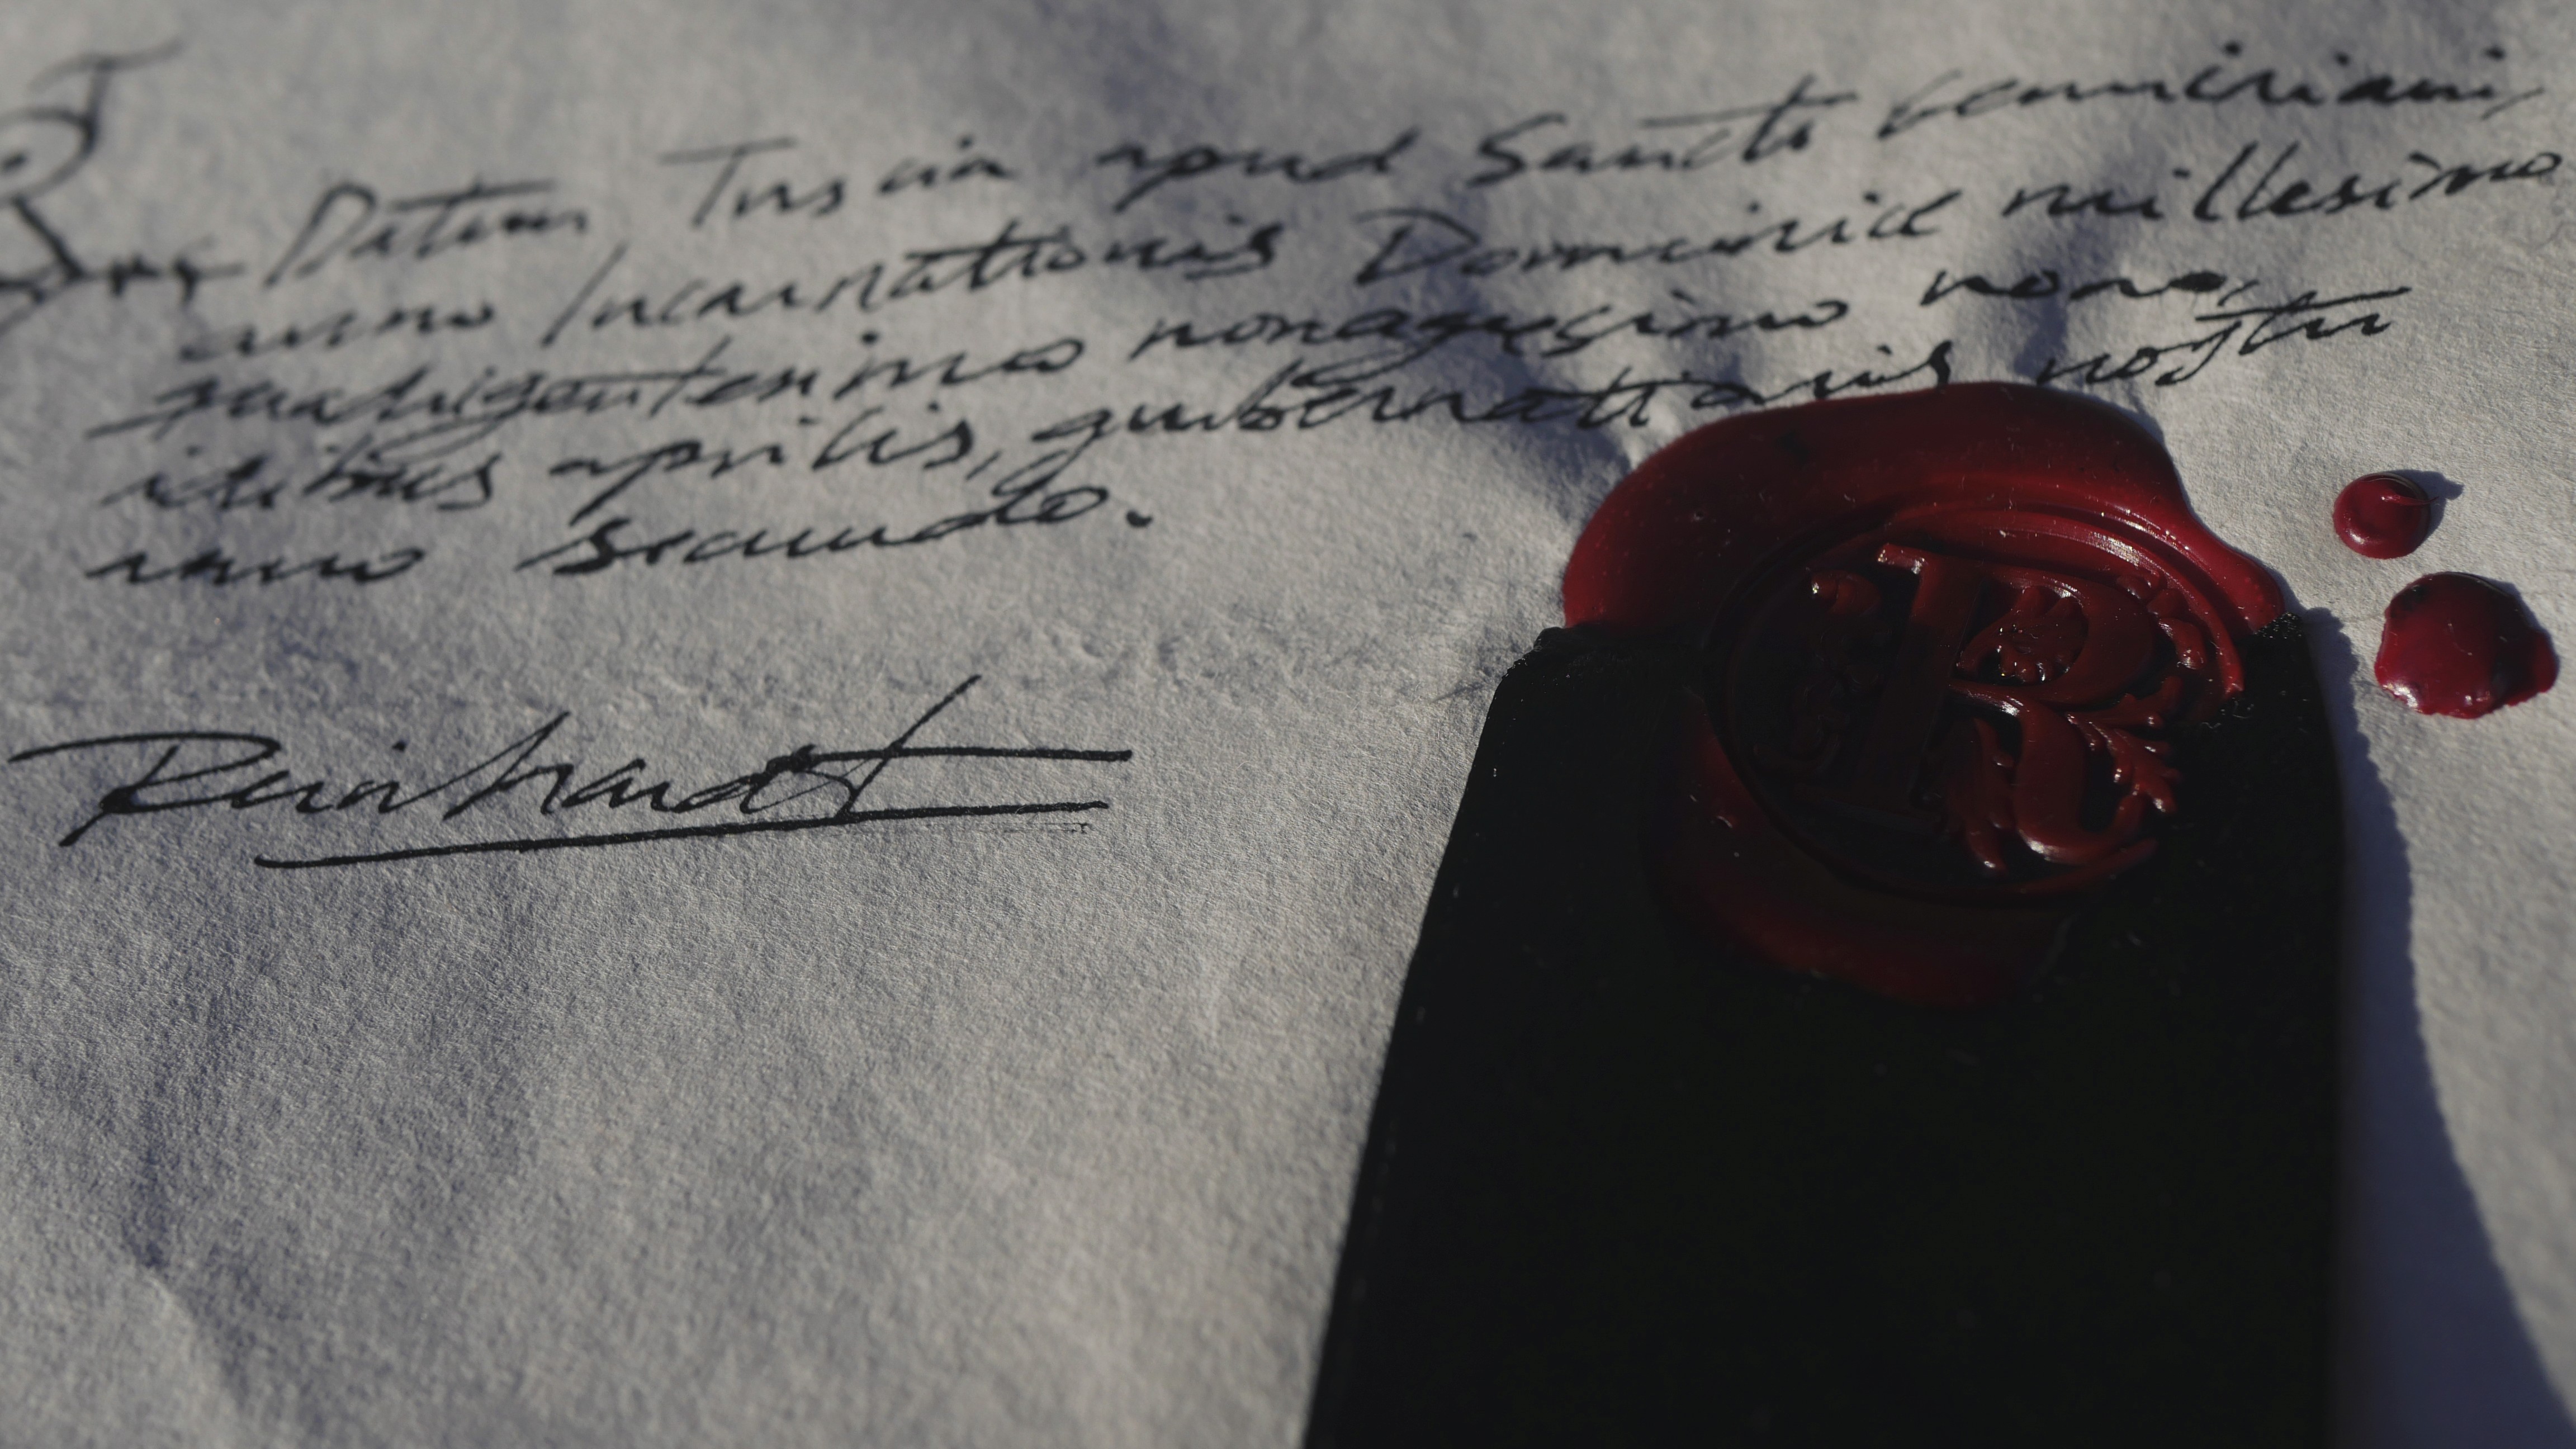 Datum Tuscia apud Sancte Geminiani,
anno Incarnationis Dominice millesimo
quadrigentesimo nonagesimo nono,
idibus aprilis, gubernationis nostri
anno secundo.
Reinhardt
R